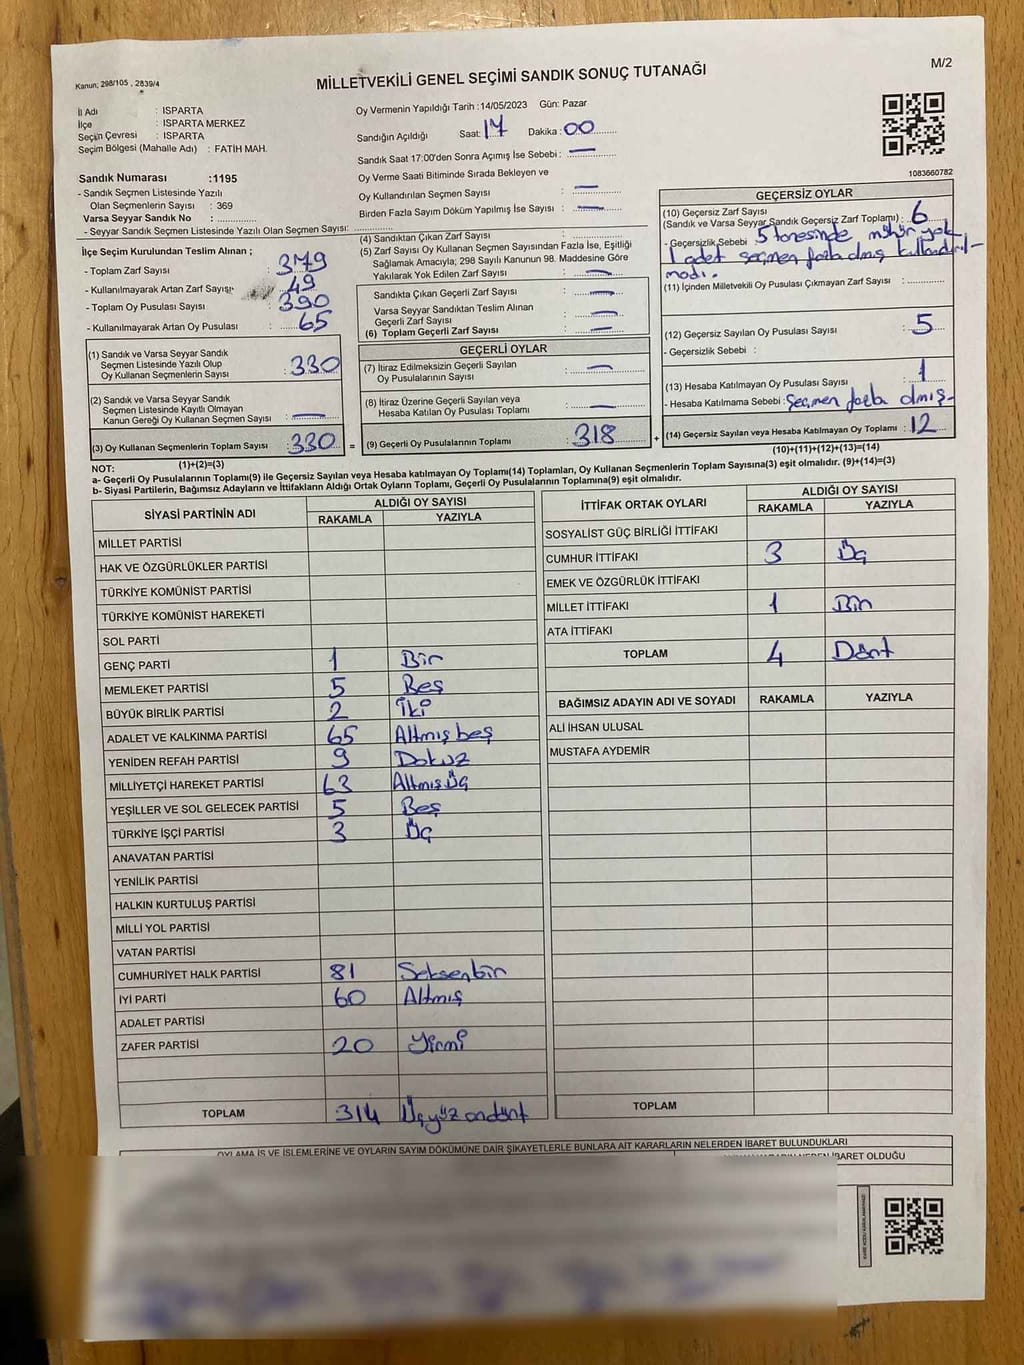 Kanun; 298/105 , 2839/4
MİLLETVEKİLİ GENEL SEÇİMİ SANDIK SONUÇ TUTANAĞI
M/2
İl Adı : ISPARTA
İlçe : ISPARTA MERKEZ
Seçim Çevresi : ISPARTA
Seçim Bölgesi (Mahalle Adı) : FATİH MAH.
Sandık Numarası :1195
- Sandık Seçmen Listesinde Yazılı
Olan Seçmenlerin Sayısı : 369
Varsa Seyyar Sandık No : ..............
- Seyyar Sandık Seçmen Listesinde Yazılı Olan Seçmen Sayısı: ..............
Oy Vermenin Yapıldığı Tarih :14/05/2023 Gün: Pazar
Sandığın Açıldığı Saat: 17 Dakika : 00
Sandık Saat 17:00'den Sonra Açımış İse Sebebi : —
Oy Verme Saati Bitiminde Sırada Bekleyen ve
Oy Kullandırılan Seçmen Sayısı : —
Birden Fazla Sayım Döküm Yapılmış İse Sayısı : —
1083660782
İlçe Seçim Kurulundan Teslim Alınan ;
- Toplam Zarf Sayısı : 379
- Kullanılmayarak Artan Zarf Sayısı : 49
- Toplam Oy Pusulası Sayısı : 390
- Kullanılmayarak Artan Oy Pusulası : 65
(1) Sandık ve Varsa Seyyar Sandık
Seçmen Listesinde Yazılı Olup
Oy Kullanan Seçmenlerin Sayısı : 330
(2) Sandık ve Varsa Seyyar Sandık
Seçmen Listesinde Kayıtlı Olmayan
Kanun Gereği Oy Kullanan Seçmen Sayısı : —
(3) Oy Kullanan Seçmenlerin Toplam Sayısı : 330 =
(1)+(2)=(3)
(4) Sandıktan Çıkan Zarf Sayısı :
(5) Zarf Sayısı Oy Kullanan Seçmen Sayısından Fazla İse, Eşitliği
Sağlamak Amacıyla; 298 Sayılı Kanunun 98. Maddesine Göre
Yakılarak Yok Edilen Zarf Sayısı : —
Sandıkta Çıkan Geçerli Zarf Sayısı : —
Varsa Seyyar Sandıktan Teslim Alınan
Geçerli Zarf Sayısı : —
(6) Toplam Geçerli Zarf Sayısı : —
GEÇERLİ OYLAR
(7) İtiraz Edilmeksizin Geçerli Sayılan
Oy Pusulalarının Sayısı : —
(8) İtiraz Üzerine Geçerli Sayılan veya
Hesaba Katılan Oy Pusulası Toplamı : —
(9) Geçerli Oy Pusulalarının Toplamı : 318 +
GEÇERSİZ OYLAR
(10) Geçersiz Zarf Sayısı
(Sandık ve Varsa Seyyar Sandık Geçersiz Zarf Toplamı) : 6
- Geçersizlik Sebebi : 5 tanesinde mühür yok
1 adet seçmen fazla dmış kullandırıl-
madı.
(11) İçinden Milletvekili Oy Pusulası Çıkmayan Zarf Sayısı : ..............
(12) Geçersiz Sayılan Oy Pusulası Sayısı : 5
- Geçersizlik Sebebi :
(13) Hesaba Katılmayan Oy Pusulası Sayısı : 1
- Hesaba Katılmama Sebebi : Seçmen fazla dmış-
(14) Geçersiz Sayılan veya Hesaba Katılmayan Oy Toplamı : 12
(10)+(11)+(12)+(13)=(14)
NOT:
a- Geçerli Oy Pusulalarının Toplamı(9) ile Geçersiz Sayılan veya Hesaba katılmayan Oy Toplamı(14) Toplamları, Oy Kullanan Seçmenlerin Toplam Sayısına(3) eşit olmalıdır. (9)+(14)=(3)
b- Siyasi Partilerin, Bağımsız Adayların ve İttifakların Aldığı Ortak Oyların Toplamı, Geçerli Oy Pusulalarının Toplamına(9) eşit olmalıdır.
SİYASİ PARTİNİN ADI ALDIĞI OY SAYISI
RAKAMLA YAZIYLA
MİLLET PARTİSİ
HAK VE ÖZGÜRLÜKLER PARTİSİ
TÜRKİYE KOMÜNİST PARTİSİ
TÜRKİYE KOMÜNİST HAREKETİ
SOL PARTİ
GENÇ PARTİ 1 Bir
MEMLEKET PARTİSİ 5 Beş
BÜYÜK BİRLİK PARTİSİ 2 İki
ADALET VE KALKINMA PARTİSİ 65 Altmışbeş
YENİDEN REFAH PARTİSİ 9 Dokuz
MİLLİYETÇİ HAREKET PARTİSİ 63 Altmışüç
YEŞİLLER VE SOL GELECEK PARTİSİ 5 Beş
TÜRKİYE İŞÇİ PARTİSİ 3 Üç
ANAVATAN PARTİSİ
YENİLİK PARTİSİ
HALKIN KURTULUŞ PARTİSİ
MİLLİ YOL PARTİSİ
VATAN PARTİSİ
CUMHURİYET HALK PARTİSİ 81 Seksenbir
İYİ PARTİ 60 Altmış
ADALET PARTİSİ
ZAFER PARTİSİ 20 Yirmi
TOPLAM 314 Üçyüz ondört
İTTİFAK ORTAK OYLARI ALDIĞI OY SAYISI
RAKAMLA YAZIYLA
SOSYALİST GÜÇ BİRLİĞİ İTTİFAKI
CUMHUR İTTİFAKI 3 Üç
EMEK VE ÖZGÜRLÜK İTTİFAKI
MİLLET İTTİFAKI 1 Bir
ATA İTTİFAKI
TOPLAM 4 Dört
BAĞIMSIZ ADAYIN ADI VE SOYADI RAKAMLA YAZIYLA
ALİ İHSAN ULUSAL
MUSTAFA AYDEMİR
TOPLAM
OYLAMA İŞ VE İŞLEMLERİNE VE OYLARIN SAYIM DÖKÜMÜNE DAİR ŞİKAYETLERLE BUNLARA AİT KARARLARIN NELERDEN İBARET BULUNDUKLARI
İBARET OLDUĞU